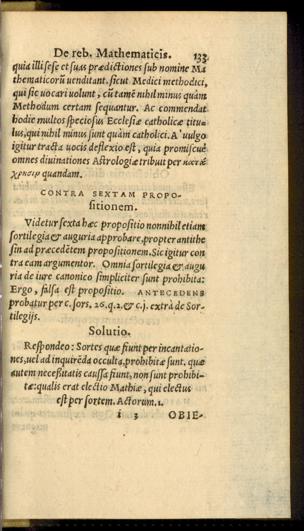 De reb. Mathematicis. 133
quia illi sese et suas prædictiones sub nomine Ma
thematicorũ uenditant. sicut Medici methodici,
qui sic uocari uolunt, cũ tamẽ nihil minus quàm
Methodum certam sequantur. Ac commendat
hodie multos speciosus Ecclesiæ catholicæ titu-
lus, qui nihil minus sunt quàm catholici. A' uulgo
igitur tracta uocis deflexio est, quia promiscuè
omnes diuinationes Astrologiæ tribuit per
χρησιμ quandam.
CONTRA SEXTAM PROPO-
sitionem.
Videtur sexta hæc propositio nonnihil etiam
sortilegia & auguria approbare, propter antithe
sin ad præcedẽtem propositionem. Sic igitur con
tra eam argumentor. Omnia sortilegia & augu
ria de iure canonico simpliciter sunt prohibita:
Ergo, falsa est propositio. ANTECEDENS
probatur per c. sors. 26. q. 2. & c. j. extrà de Sor-
tilegijs.
Solutio.
Respondeo: Sortes quæ fiunt per incantatio-
nes, uel ad inquirẽda occulta, prohibitæ sunt. quæ
autem necessitatis caussa fiunt, non sunt prohibi-
tæ: qualis erat electio Mathiæ, qui electus
est per sortem. Actorum. 1.
i 3 OBIE-